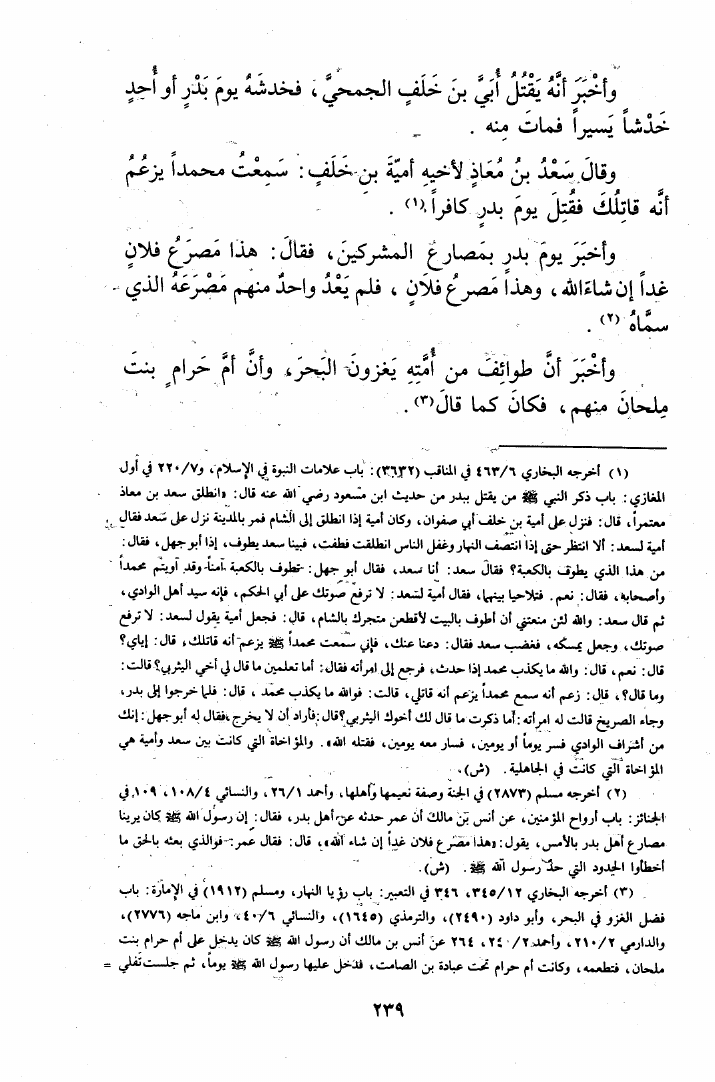 وأخْبَرَ أنَّهُ يَقْتُلُ أُبَيَّ بنَ خَلَفٍ الجمحيَّ، فخدشَهُ يومَ بَدْرٍ أو أُحِدٍ
خَدْشاً يَسيراً فماتَ مِنه .
وقالَ سَعْدُ بنُ مُعَاذٍ لأخيهِ أميّةَ بنِ خَلَفٍ: سَمِعْتُ محمداً يزعُمُ
أنَّه قاتِلُكَ فقُتِلَ يومَ بدرٍ كافراً(١) .
وأخبَرَ يومَ بدرٍ بمَصارعِ المشركينَ، فقالَ: هذا مَصرَعُ فلانٍ
غداً إن شاءَالله، وهذا مَصرعُ فلَانٍ ، فلم يَعْدُ واحدٌ منهم مَصْرَعَهُ الذي
سمَّاهُ (٢) .
وأخْبَرَ أنَّ طوائِفَ من أُمَّتِهِ يَغزونَ البَحرَ، وأنَّ أمَّ حَرامٍ بنتَ
مِلحانَ منهم، فكانَ كما قالَ(٣).
(١) أخرجه البخاري ٤٦٣/٦ في المناقب (٣٦٣٢): باب علامات النبوة في الإسلام، و٢٢٠/٧ في أول
المغازي: باب ذكر النبي ﷺ من يقتل ببدر من حديث ابن مسعود رضي الله عنه قال: «انطلق سعد بن معاذ
معتمراً، قال: فنزل على أمية بن خلف أبي صفوان، وكان أمية إذا انطلق إلى الشام فمر بالمدينة نزل على سعد فقال
أمية لسعد: ألا انتظر حتى إذا انتصف النهار وغفل الناس انطلقت فطفت، فبينا سعد يطوف، إذا أبو جهل، فقال:
من هذا الذي يطوف بالكعبة؟ فقال سعد: أنا سعد، فقال أبو جهل: تطوف بالكعبة آمناً وقد آويتم محمداً
وأصحابه، فقال: نعم. فتلاحيا بينهما، فقال أمية لسعد: لا ترفع صوتك على أبي الحكم، فإنه سيد أهل الوادي،
ثم قال سعد: والله لئن منعتني أن أطوف بالبيت لأقطعن متجرك بالشام، قال: فجعل أمية يقول لسعد: لا ترفع
صوتك، وجعل يمسكه، فغضب سعد فقال: دعنا عنك، فإني سمعت محمداً ﷺ يزعم أنه قاتلك، قال: إياي؟
قال: نعم، قال: والله ما يكذب محمد إذا حدث، فرجع إلى امرأته فقال: أما تعلمين ما قال لي أخي اليثربي؟ قالت:
وما قال؟، قال: زعم أنه سمع محمداً يزعم أنه قاتلي، قالت: فوالله ما يكذب محمد ، قال: فلما خرجوا إلى بدر،
وجاء الصريخ قالت له امرأته: أما ذكرت ما قال لك أخوك اليثربي؟قال: فأراد أن لا يخرج، فقال له أبو جهل: إنك
من أشراف الوادي فسر يوماً أو يومين، فسار معه يومين، فقتله الله». والمؤاخاة التي كانت بين سعد وأمية هي
المؤاخاة التي كانت في الجاهلية. (ش).
(٢) أخرجه مسلم (٢٨٧٣) في الجنة وصفة نعيمها وأهلها، وأحمد ٢٦/١، والنسائي ١٠٨/٤، ١٠٩، في
الجنائز: باب أرواح المؤمنين، عن أنس بن مالك أن عمر حدثه عن أهل بدر، فقال: إن رسول الله ﷺ كان يرينا
مصارع أهل بدر بالأمس، يقول: «هذا مصرع فلان غداً إن شاء الله»، قال: فقال عمر: فوالذي بعثه بالحق ما
أخطأوا الحدود التي حدّ رسول الله ﷺ. (ش).
(٣) أخرجه البخاري ٣٤٥/١٢، ٣٤٦ في التعبير: باب رؤيا النهار، ومسلم (١٩١٢) في الإمارة: باب
فضل الغزو في البحر، وأبو داود (٢٤٩٠)، والترمذي (١٦٤٥)، والنسائي ٤٠/٦، وابن ماجه (٢٧٧٦)،
والدارمي ٢١٠/٢، وأحمد ٢٤٠/٢، ٢٦٤ عن أنس بن مالك أن رسول الله ﷺ كان يدخل على أم حرام بنت
ملحان، فتطعمه، وكانت أم حرام تحت عبادة بن الصامت، فدخل عليها رسول الله ﷺ يوماً، ثم جلست تفلي =
٢٣٩